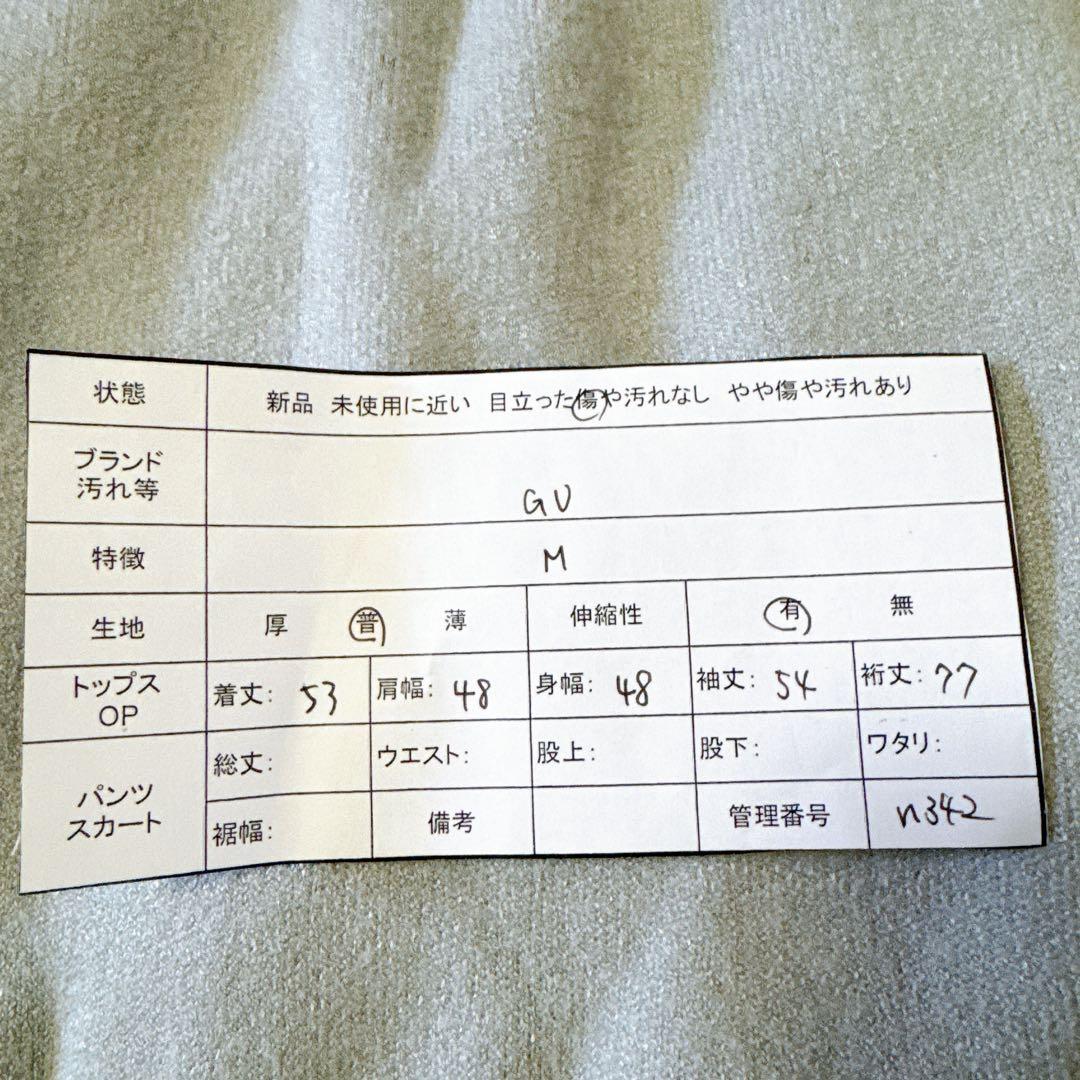 状態 新品 未使用に近い 目立った傷や汚れなし やや傷や汚れあり
ブランド
汚れ等
GU
特徴 M
生地 厚 普 薄 伸縮性 有 無
トップス
OP
着丈: 53 肩幅: 48 身幅: 48 袖丈: 54 裄丈: 77
パンツ
スカート
総丈: ウエスト: 股上: 股下: ワタリ:
裾幅: 備考 管理番号 n342